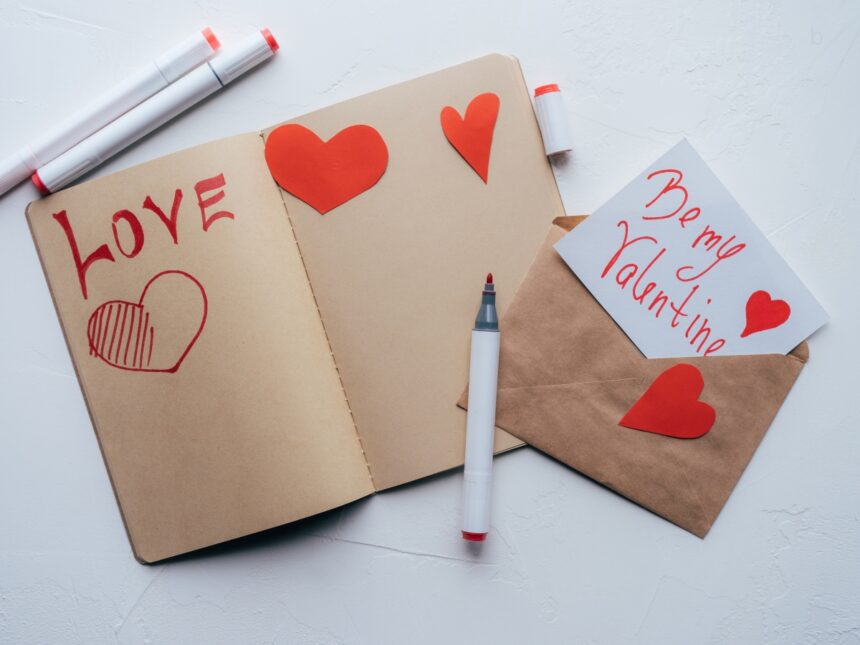 LOVE
Be my
Valentine